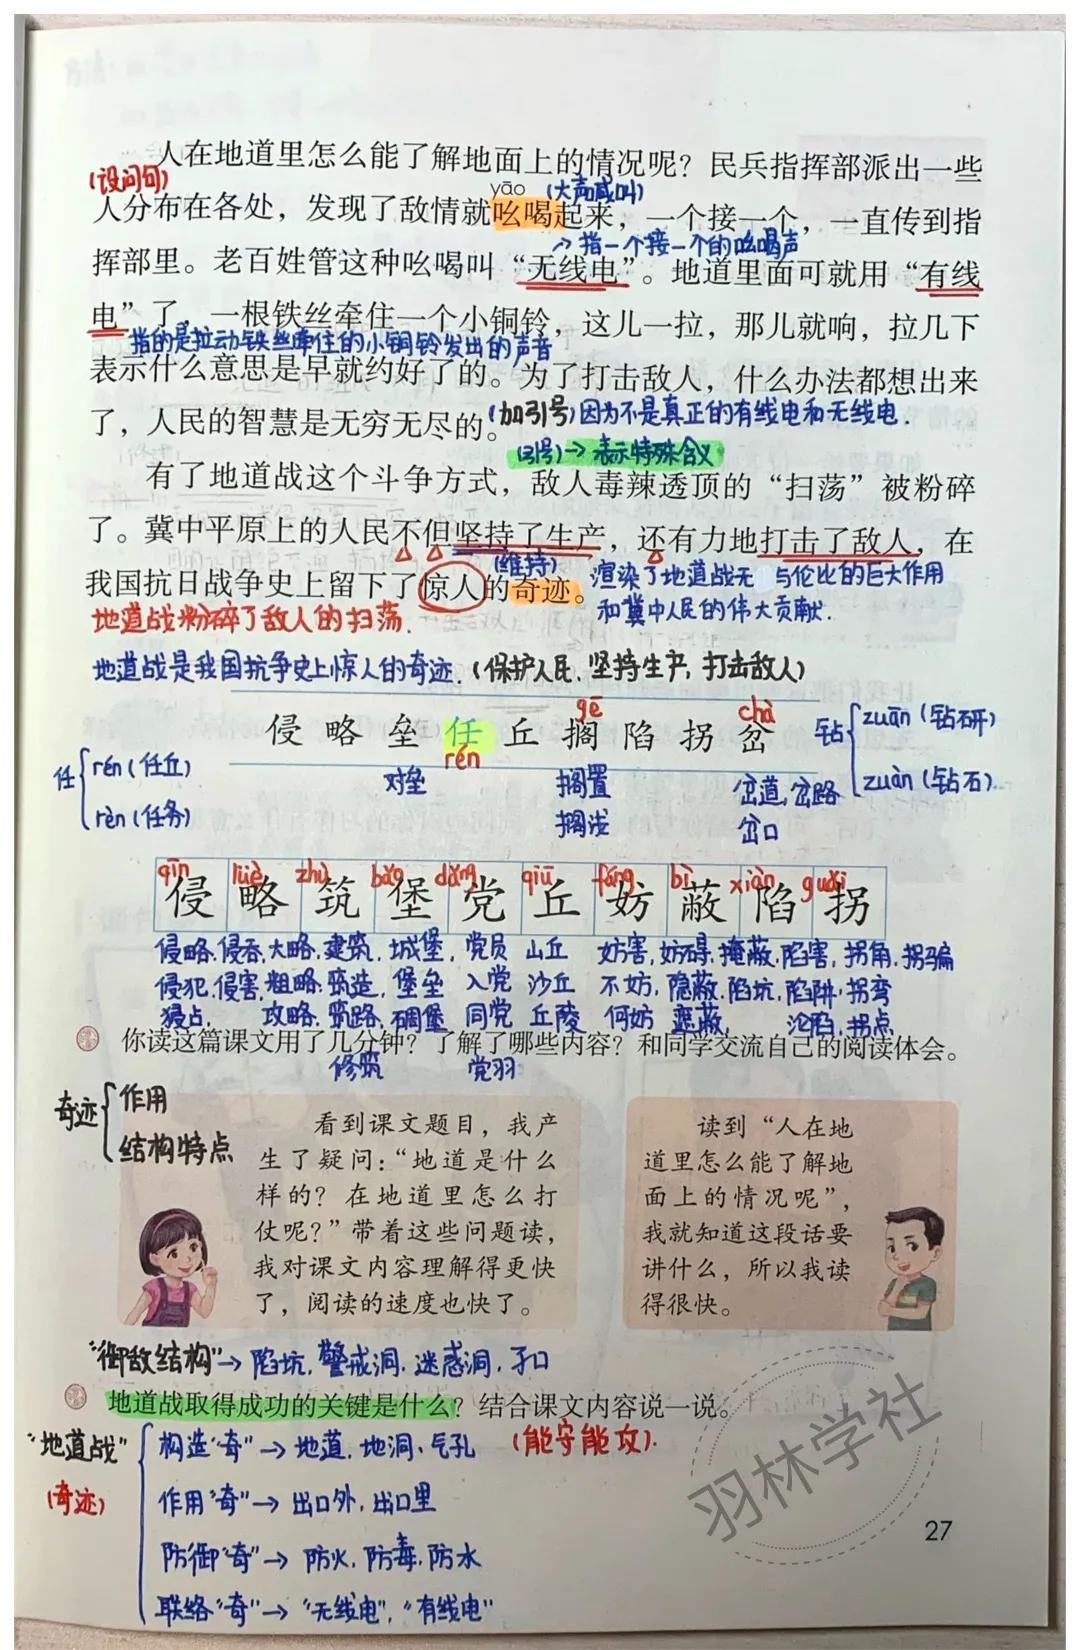 人在地道里怎么能了解地面上的情况呢？民兵指挥部派出一些
(设问句)
yāo (大声喊叫)
人分布在各处，发现了敌情就吆喝起来，一个接一个，一直传到指
→指一个接一个的吆喝声
挥部里。老百姓管这种吆喝叫“无线电”。地道里面可就用“有线
电”了，一根铁丝牵住一个小铜铃，这儿一拉，那儿就响，拉几下
指的是拉动铁丝牵住的小铜铃发出的声音
表示什么意思是早就约好了的。为了打击敌人，什么办法都想出来
了，人民的智慧是无穷无尽的。
(加引号)因为不是真正的有线电和无线电.
(引号)→表示特殊含义
有了地道战这个斗争方式，敌人毒辣透顶的“扫荡”被粉碎
了。冀中平原上的人民不但坚持了生产，还有力地打击了敌人，在
(维持)
我国抗日战争史上留下了惊人的奇迹。
渲染了地道战无 与伦比的巨大作用
和冀中人民的伟大贡献.
地道战粉碎了敌人的扫荡.
地道战是我国抗争史上惊人的奇迹.(保护人民、坚持生产,打击敌人)
gē chà
侵 略 垒 任 丘 搁 陷 拐 岔
rén
钻 zuān(钻研)
zuàn(钻石).
任 rén(任丘)
rèn(任务)
对垒 搁置 岔道,岔路
搁浅 岔口
qīn lüè zhù bǎo dǎng qiū fáng bì xiàn guǎi
侵 略 筑 堡 党 丘 妨 蔽 陷 拐
侵略.侵吞.大略.建筑.城堡, 党员 山丘 妨害,妨碍.掩蔽.陷害,拐角.拐骗
侵犯.侵害.粗略.筑造, 堡垒 入党 沙丘 不妨,隐蔽.陷坑,陷阱.拐弯
侵占. 攻略.筑路.碉堡 同党 丘陵 何妨 遮蔽, 沦陷.拐点
你读这篇课文用了几分钟？了解了哪些内容？和同学交流自己的阅读体会。
修筑 党羽
奇迹 作用
结构特点
看到课文题目，我产
生了疑问：“地道是什么
样的？在地道里怎么打
仗呢？”带着这些问题读，
我对课文内容理解得更快
了，阅读的速度也快了。
读到“人在地
道里怎么能了解地
面上的情况呢”，
我就知道这段话要
讲什么，所以我读
得很快。
“御敌结构”→陷坑,警戒洞.迷惑洞,孑口
地道战取得成功的关键是什么？结合课文内容说一说。
“地道战”
(奇迹)
构造“奇”→地道,地洞、气孔 (能守能攻).
作用“奇”→出口外,出口里
防御“奇”→防火,防毒,防水
联络“奇”→“无线电”,“有线电”
羽林学社
27